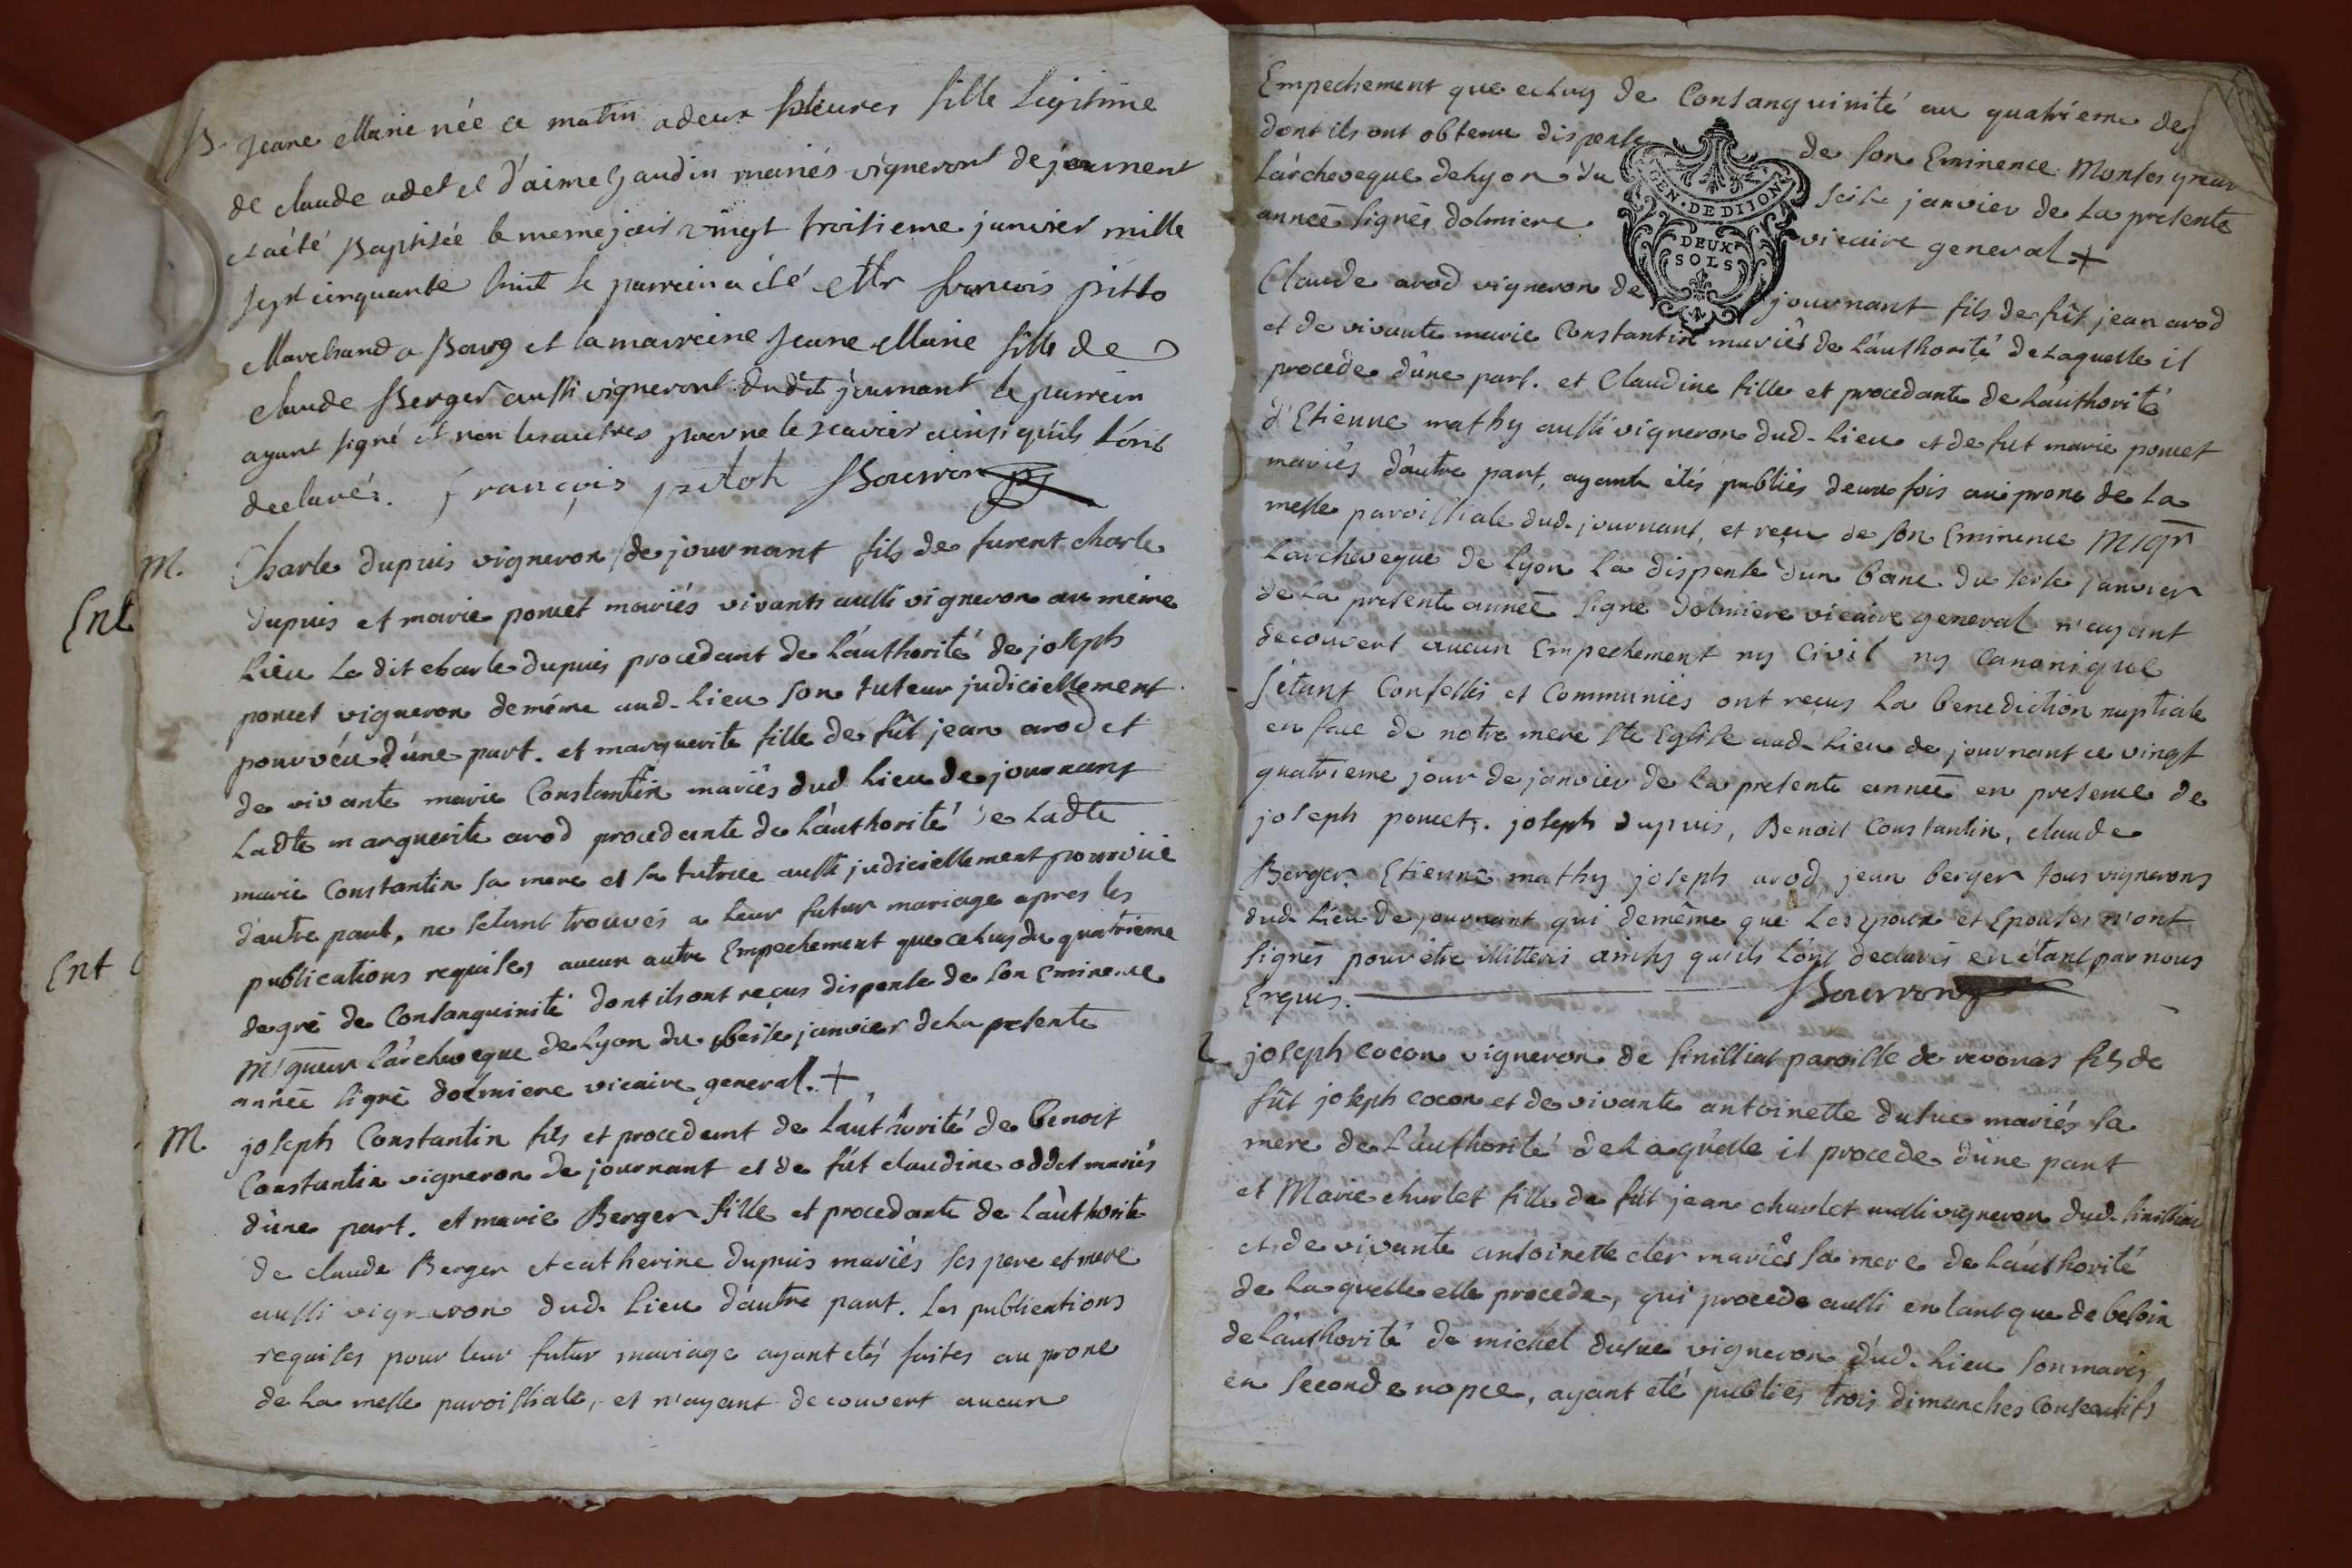 B. Jeane Marie née ce matin a deux heures fille legitime
de claude adet et d'aime jandin mariés vigneront de journent
et a été Baptisée le meme jour vingt troisieme janvier mille
sept cinquante huit le parrein a été Mr francois pitto
Marchand a Bourg et la marreine Jeane Marie fille de
claude Berger aussi vigneront dudit journant le parrein
ayant signé et non les autres pour ne le scavoir ainsi quils l'ont
declarés. françois pitoh Bourron
M. Charle dupuis vigneron de journant fils de furent charle
dupuis et marie poncet mariés vivants aussi vigneron au même
Ent
Lieu le dit charle dupuis procedant de l'authorité de joseph
poncet vigneron de même aud. Lieu son tuteur judiciellement
pourvéu d'une part. et marguerite fille de fût jean arod et
de vivante marie Constantin mariés dud Lieu de journant
Ladte marguerite arod procedante de l'authorité de Ladte
marie Constantin sa mere et sa tutrice aussi judiciellement pourvüe
d'autre part, ne setant trouvés a leur futur mariage apres les
publications requises aucun autre Empechement que celuy du quatrieme
Ent
degré de Consanguinité dont ils ont reçus dispense de son Eminence
M'gneur l'archeveque de Lyon du seise janvier de la presente
année signé dolmiere vicaire general. +
M. joseph Constantin fils et procedant de l'authorité de benoit
Constantin vigneron de journant et de fût claudine oddet mariés
d'une part. et marie Berger fille et procedante de l'authorité
de claude Berger et catherine dupuis mariés ses pere et mere
aussi vigneron dud. Lieu d'autre part. Les publications
requises pour leur futur mariage ayant etés faites au prone
de la messe paroissiale, et n'ayant decouvert aucun
Empechement que celuy de Consanguinité au quatrieme deg
dont ils ont obtenu dispense de son Eminence Monseigneur
L'archeveque de Lyon du seise janvier de la presente
année signés dolmiere vicaire general +
GEN. DE DIJON
DEUX
SOLS
Claude arod vigneron de journant fils de fût jean arod
et de vivante marie Constantin mariés de l'authorité de Laquelle il
procede d'une part. et Claudine fille et procedante de l'authorité
d'Etienne mathy aussi vigneron dud. Lieu et de fut marie poncet
mariés d'autre part, ayants étés publiés deux fois au prone de la
messe paroissiale dud. journant, et reçu de son Eminence M'gr
Larcheveque de Lyon la dispense d'un banc du seise janvier
de la presente année signé dolmiere vicaire general n'ayant
decouvert aucun Empechement ny Civil ny Canonique
s'etant Confessés et Communiés ont reçus la benediction nuptiale
en face de notre mere Ste Eglise aud. Lieu de journant ce vingt
quatrieme jour de janvier de la presente année en presence de
joseph poncet, joseph dupuis, Benoit Constantin, claude
Berger, Etienne mathy joseph arod, jean berger tous vignerons
dud. Lieu de journant qui de même que Les epoux et Epouses n'ont
signés pour être illitterés ainsy qu'ils l'ont declarés en étant par nous
Enquis. Bourron
joseph cocon vigneron de sinilliat paroisse de revonas fils de
fût joseph cocon et de vivante antoinette dusue mariés sa
mere de l'authorité de Laquelle il procede d'une part
et Marie charlet fille de fût jean charlet aussi vigneron dud. sinilliat
et de vivante antoinette cler mariés sa mere de l'authorité
de Laquelle elle procede, qui procede aussi en tant que de besoin
de l'authorité de michel dusue vigneron dud. Lieu son maris
en seconde nopce, ayant été publiés trois dimanches Consecutifs